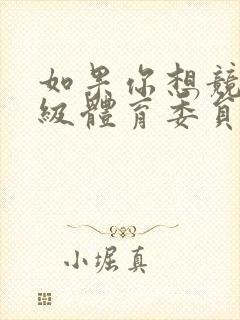 如果你想競
級體育委員
小堀真